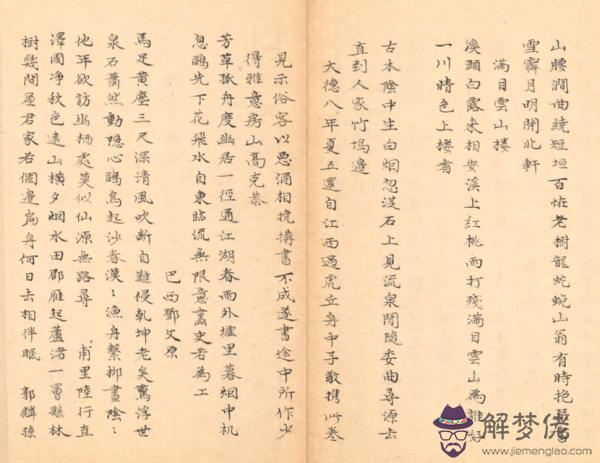 山腰澗曲繞短垣百怪老樹龍蛇蜿山翁有時抱
雪霽月明開北軒
滿目雲山樓
溪頭白露來相安溪上紅桃雨打殘滿目雲山為誰好
一川晴色上樓看
古木陰中生白烟忽從石上見流泉閒隨委曲尋源去
直到人家竹塢邊
大德八年夏五還自江西過虎丘身中子敬携此卷
見示俗客以惡酒相撓搆書不成遂書途中所作以
得雅意房山高克恭
芳草孤舟度幽居一徑通江湖春雨外墟里暮烟中机
息鷗先下花飛水自東臨流無限意畫史若為工
巴西鄧文原
馬足黃塵三尺深清風吹斷自難侵乾坤老矣驚浮世
泉石蕭然動隱心鷗鳥起沙春漠〻漁舟繫柳晝陰〻
他年欲訪幽栖處莫似仙源無路尋
甫里陸行直
澤國凈秋色遠山橫夕烟水田郡雁起蘆渚一鷺眠林
樹幾間屋君家若個邊扁舟何日去相伴眠
郭麟孫
解梦佬
https://www.jiemenglao.com